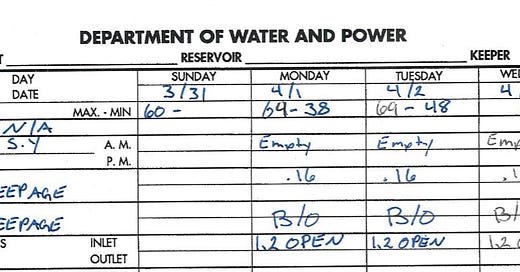 DEPARTMENT OF WATER AND POWER
RESERVOIR KEEPER
DAY SUNDAY MONDAY TUESDAY
DATE 3/31 4/1 4/2 4/
MAX. - MIN 60 - 69 - 38 69 - 48
N/A
S.Y A. M. Empty Empty
P. M.
EEPAGE .16 .16
EEPAGE B/O B/O
INLET 1,2 OPEN 1,2 OPEN
OUTLET